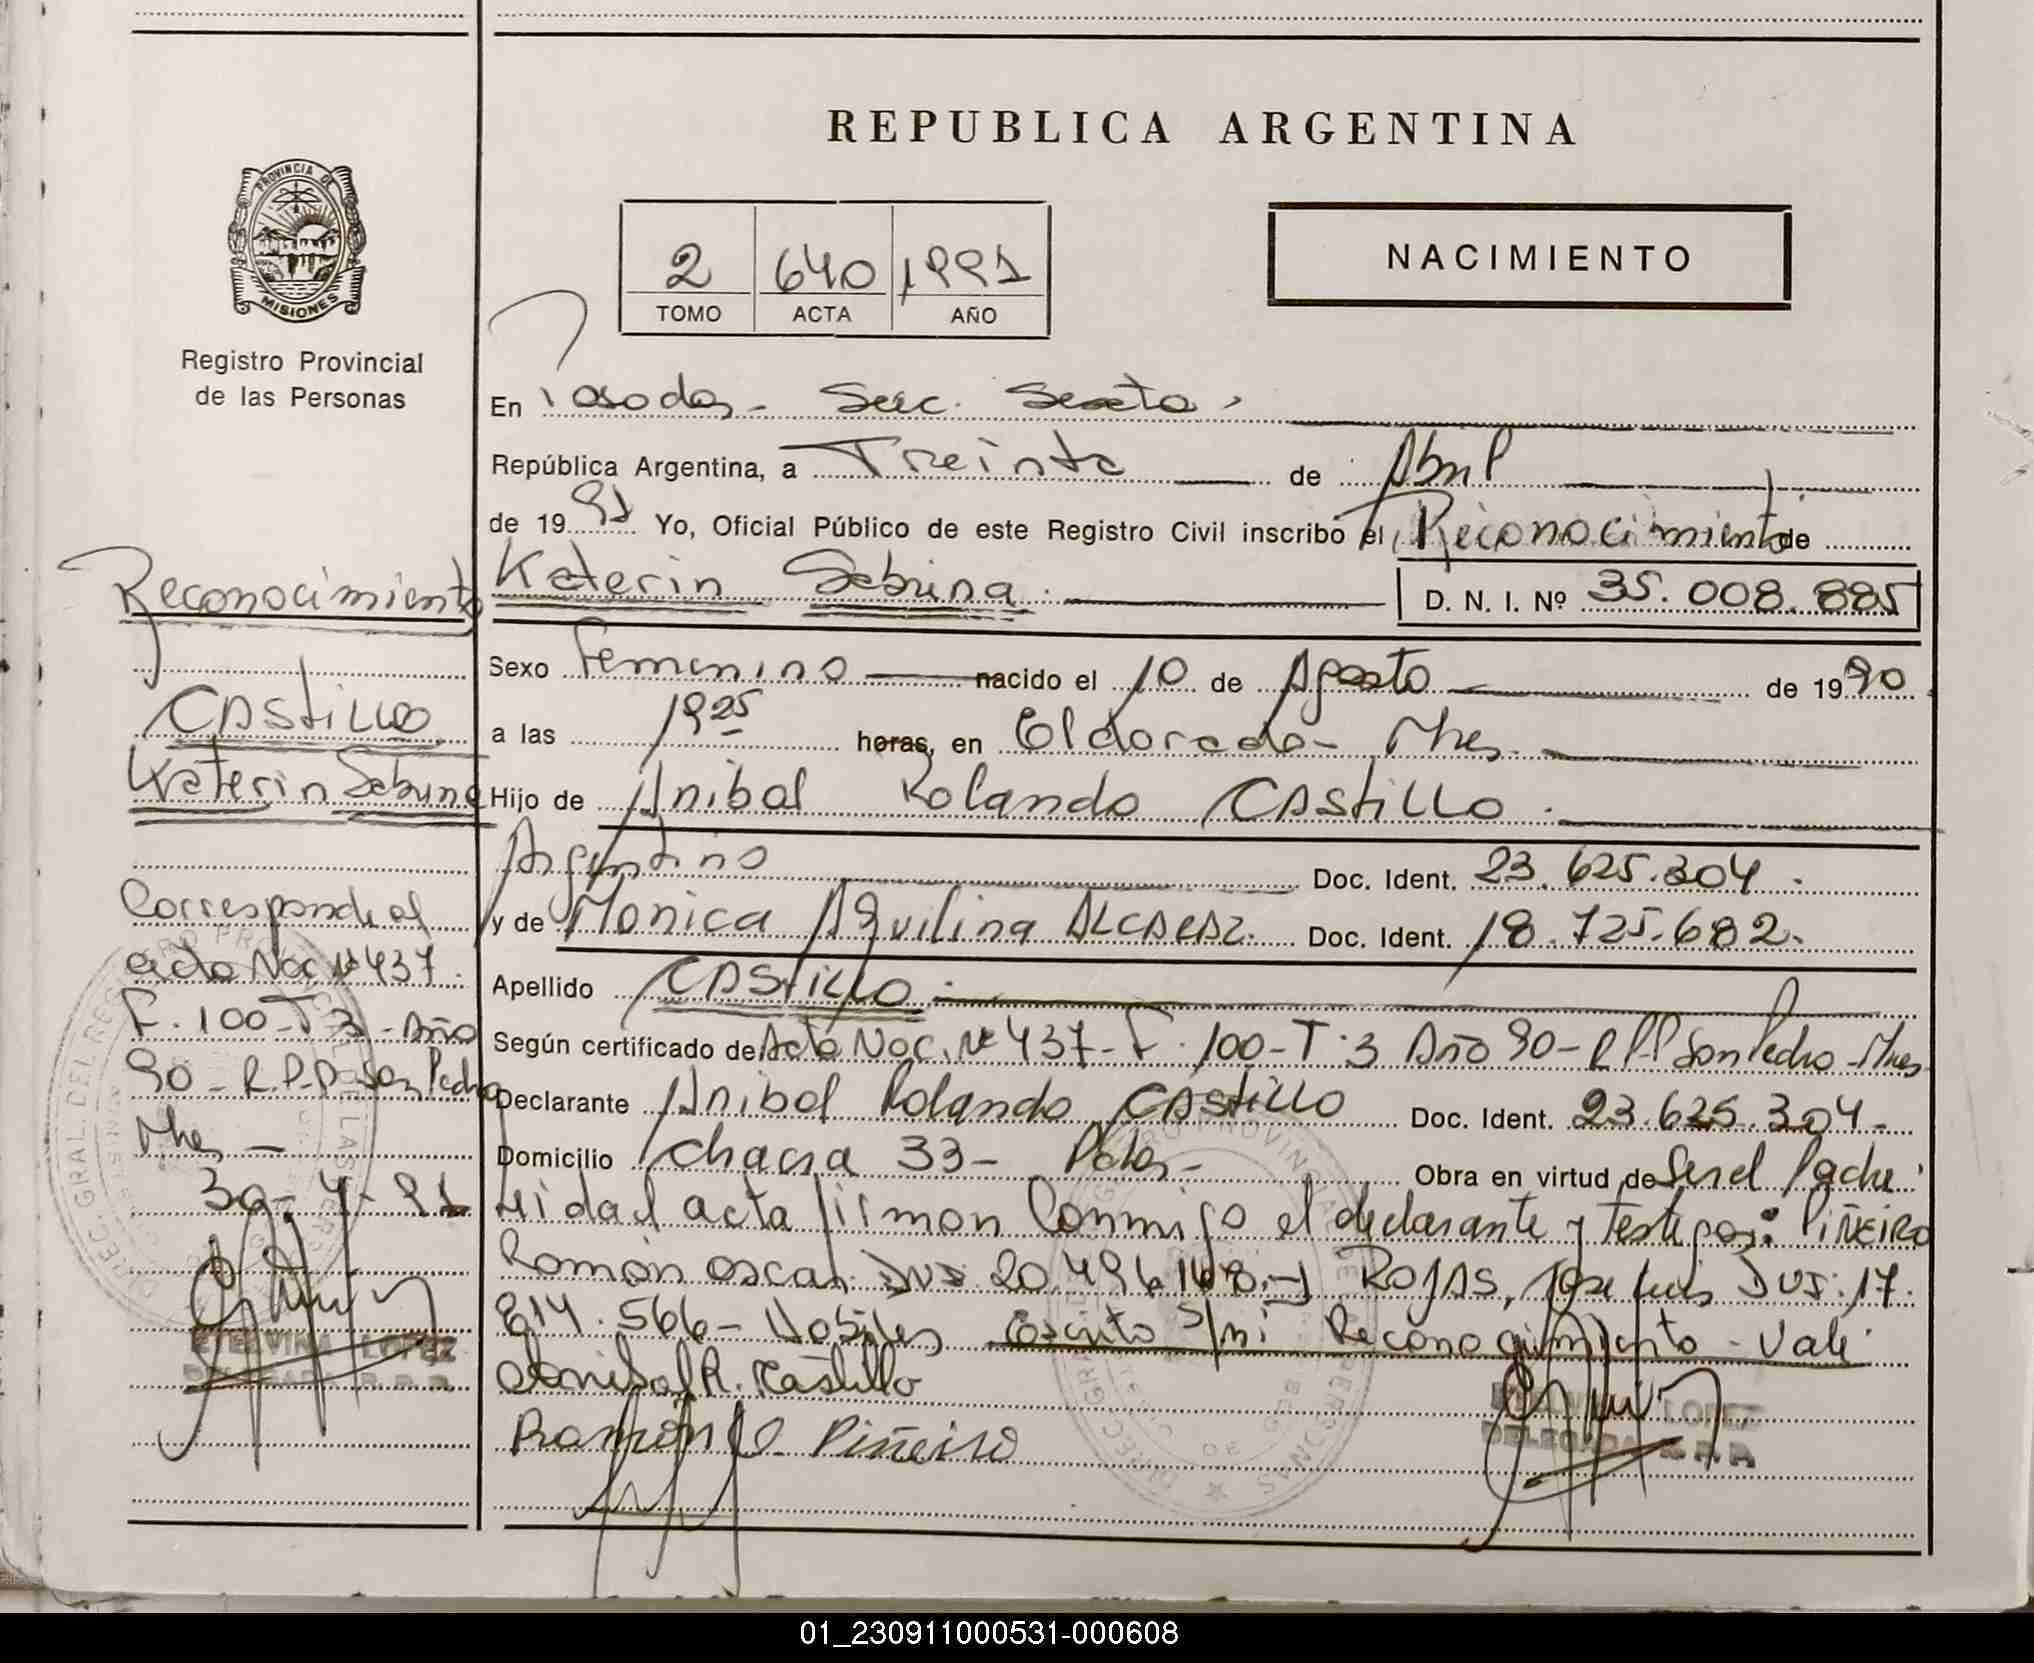 REPUBLICA ARGENTINA
PROVINCIA DE
MISIONES
Registro Provincial
de las Personas
2 640 1991
TOMO ACTA AÑO
NACIMIENTO
En Posadas - Secc. Sexta
República Argentina, a Treinta de Abril
de 1991 Yo, Oficial Público de este Registro Civil inscribo el Reconocimiento de
Katerin Sabrina D. N. I. Nº 35.008.885
Sexo Femenino nacido el 10 de Agosto de 1990
a las 19 25 horas, en Eldorado - Mnes.
Hijo de Anibal Rolando CAStiLLO
Argentino Doc. Ident. 23.625.304.
y de Monica Aquilina ALCARAZ. Doc. Ident. 18.725.682.
Apellido CAStiLLO
Según certificado de Acta Nac. Nº 437 - F. 100 - T. 3 Año 90 - R.P.P San Pedro - Mnes
Declarante Anibal Rolando CAStiLLO Doc. Ident. 23.625.304 -
Domicilio Chacra 33 - Pdas - Obra en virtud de
acta firman Conmigo el declarante y testigos: PiÑEiRO
Ramón Oscar ROJAS, Jose Luis DNI: 17.
814.566 - Hábiles Escrito s/n: Reconocimiento - Vale
Anibal R. Castillo
Ramón O. Piñeiro
LOPEZ
DELEGADA R.P.P.
Reconocimiento
CAStiLLO
Katerin Sabrina
Corresponde al
acta Nac. Nº 437
F. 100 - T 3 - Año
90 - R.P.P San Pedro
Mnes -
30 - 4 - 91
ETELVINA LOPEZ
DELEGADA R.P.P.
01_230911000531-000608